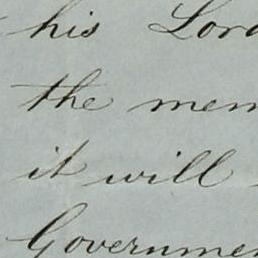 his Lord
the mem
it will
Governmen